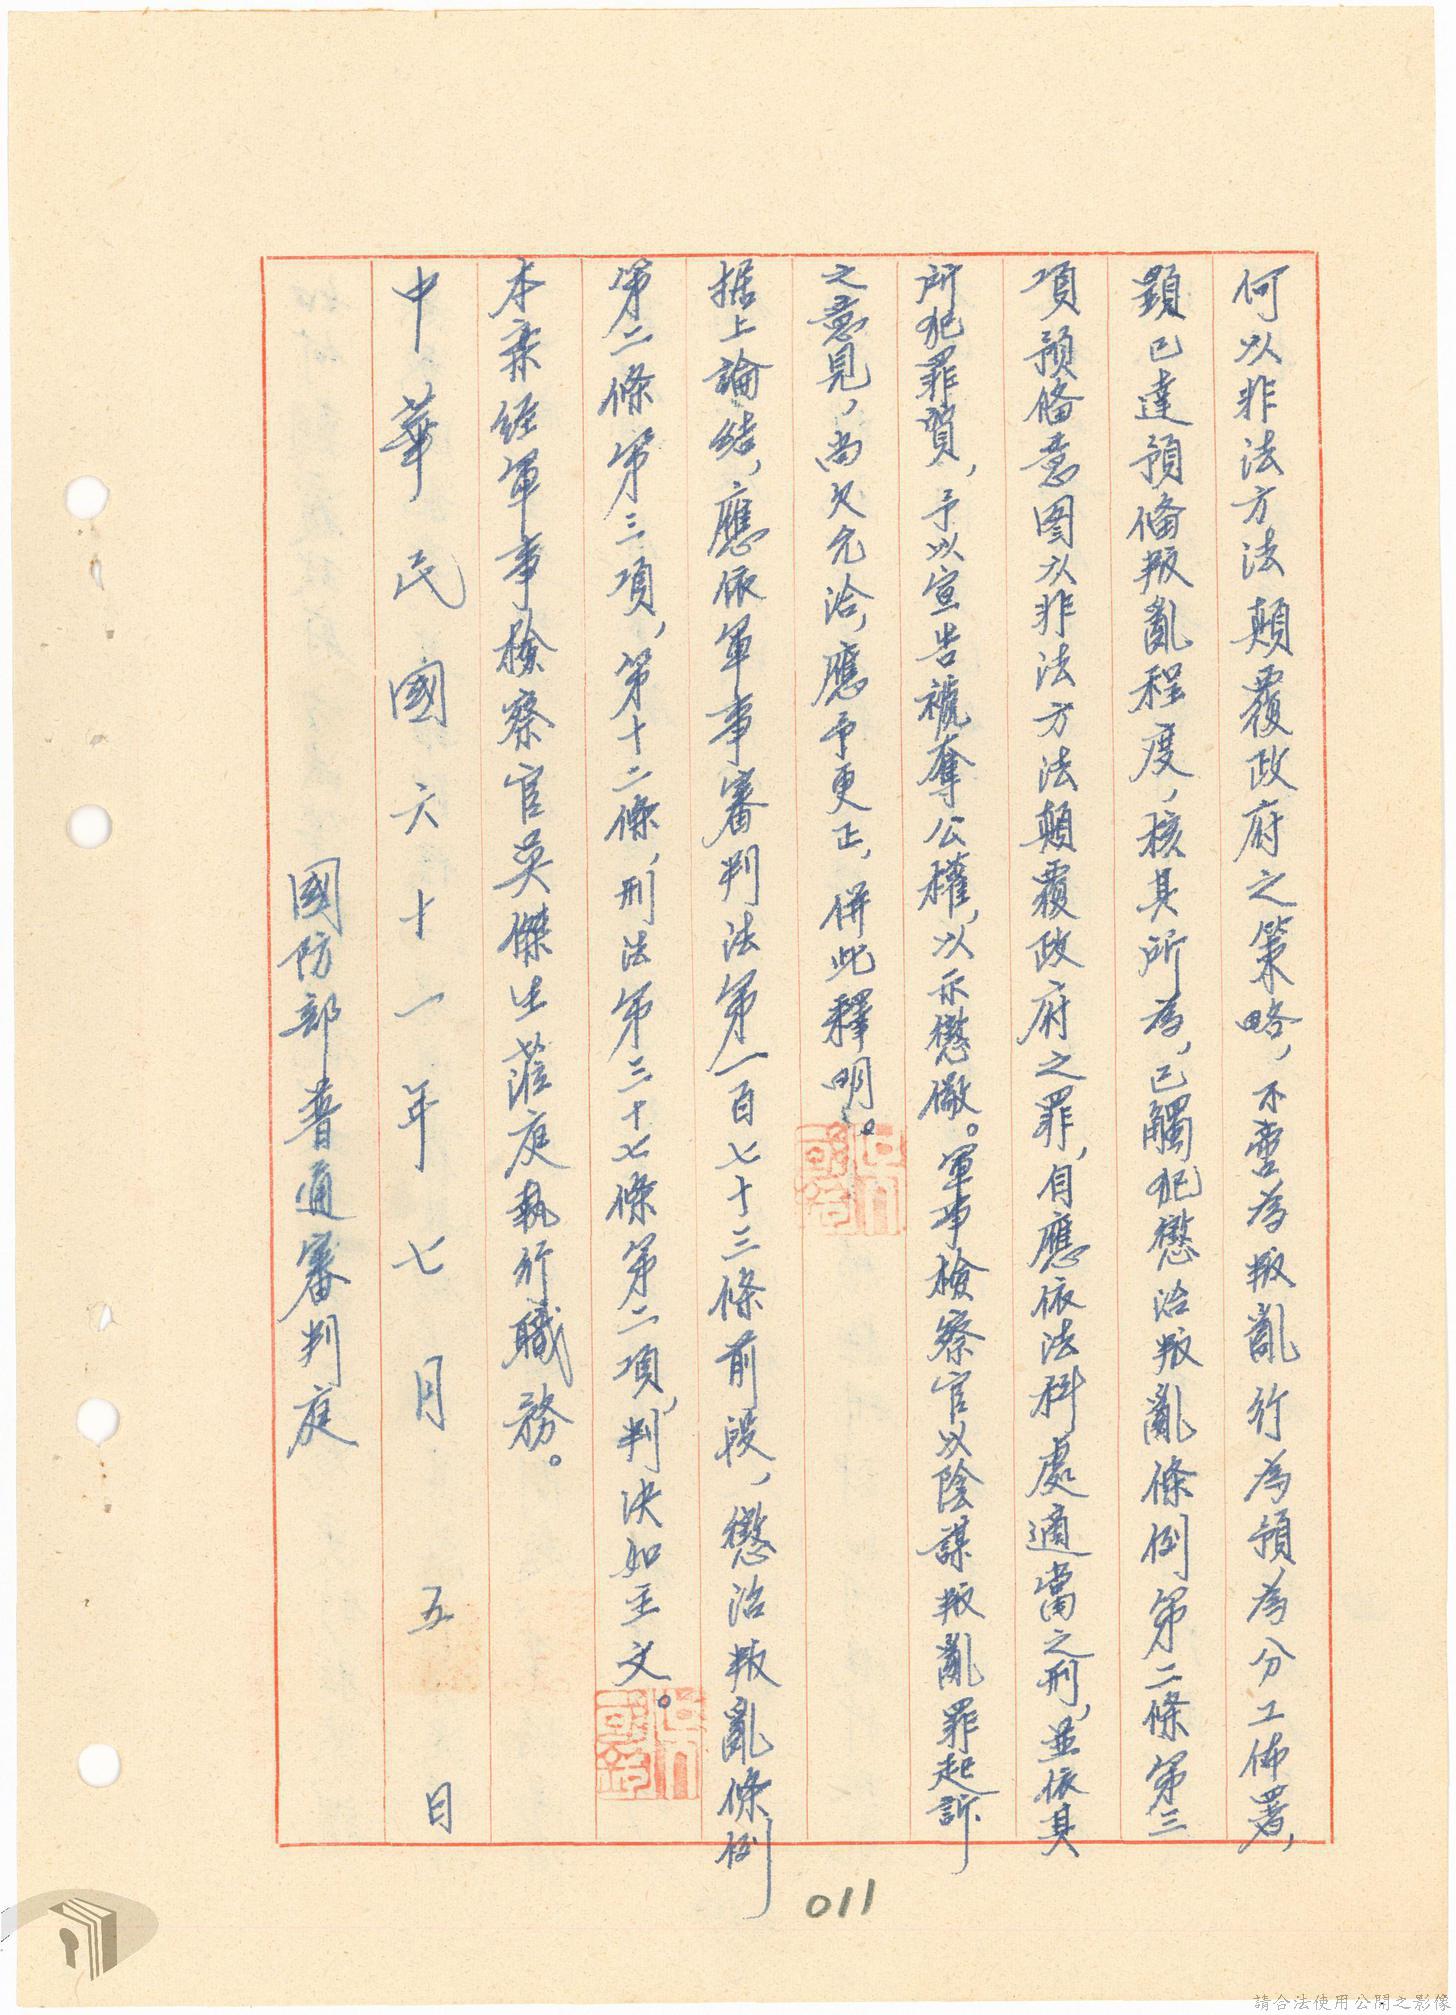 何以非法方法顛覆政府之策略，不啻為叛亂行為預為分工佈署，
顯已達預備叛亂程度，核其所為，已觸犯懲治叛亂條例第二條第三
項預備意图以非法方法顛覆政府之罪，自應依法科處適當之刑，並依其
所犯罪質，予以宣告褫奪公權，以示懲儆。軍事檢察官以陰謀叛亂罪起訴
之意見，尚欠允洽，應予更正，併此釋明。
据上論結，應依軍事審判法第一百七十三條前段，懲治叛亂條例
第二條第三項，第十二條，刑法第三十七條第二項，判決如主文。
本案经軍事檢察官吳傑生蒞庭執行職務。
中華民國六十一年七月五日
國防部普通審判庭
011
請合法使用公開之影像